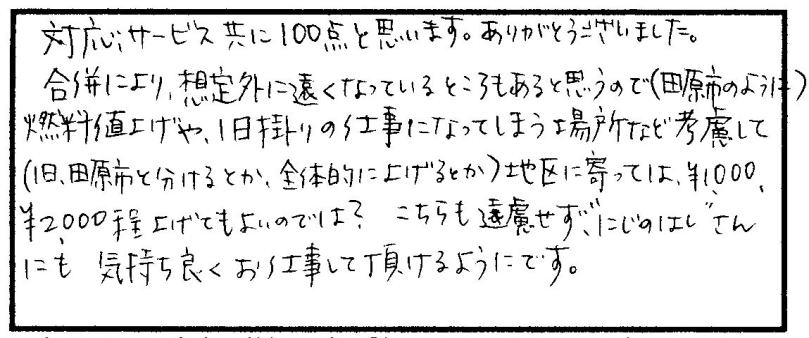 対応、サービス共に100点と思います。ありがとうございました。
合併により、想定外に遠くなっているところもあると思うので(田原市のように)
燃料値上げや、1日掛りの仕事になってしまう場所など考慮して
(旧、田原市と分けるとか、全体的に上げるとか)地区に寄っては、¥1,000、
¥2,000程上げてもよいのでは? こちらも遠慮せず、"にじのはし"さん
にも 気持ち良くお仕事して頂けるようにです。